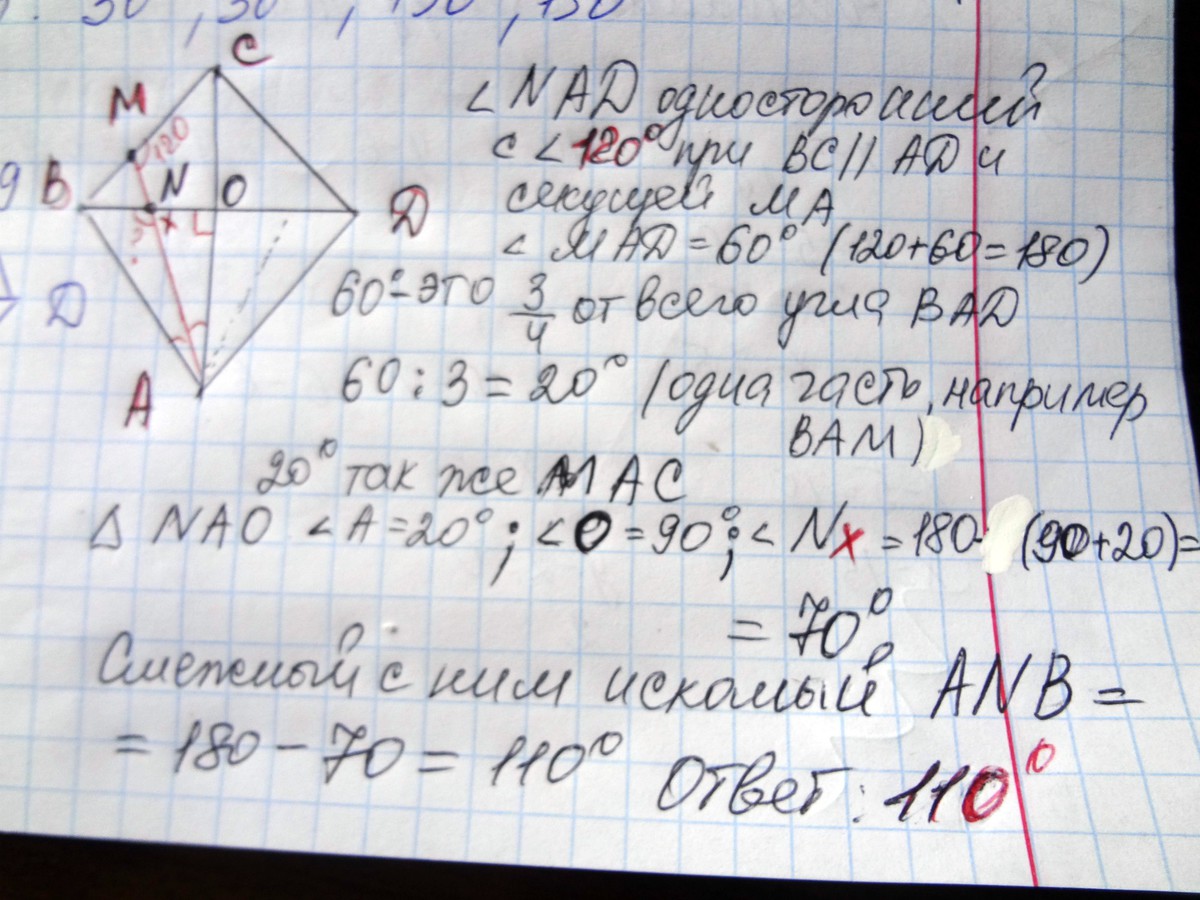 30°, 30°, 150, 150
C
M
120
9
B
N
O
D
x
?
D
A
< NAD односторонний
с < 120° при BC || AD и
секущей MA
< MAD = 60° (120+60=180)
60° - это 3/4 от всего угла BAD
60 : 3 = 20° (одна часть, например
BAM)
20° так же MAC
△ NAO < A = 20°; < O = 90°; < Nx = 180 - (90+20) =
= 70°
Смежный с ним искомый ANB =
= 180 - 70 = 110°
Ответ: 110°